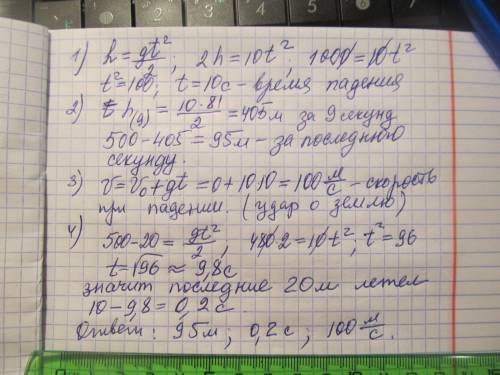 1) h = gt²/2; 2h = 10t²; 1000 = 10t²
t² = 100; t = 10с – время падения
2) h(9) = 10·81/2 = 405м за 9 секунд
500 - 405 = 95м – за последнюю
секунду.
3) V = V₀ + gt = 0 + 10·10 = 100 м/с – скорость
при падении. (удар о землю)
4) 500 - 20 = gt²/2; 480·2 = 10t²; t² = 96
t = √96 ≈ 9,8с
значит последние 20м летел
10 - 9,8 = 0,2с.
Ответ: 95м; 0,2с; 100 м/с.